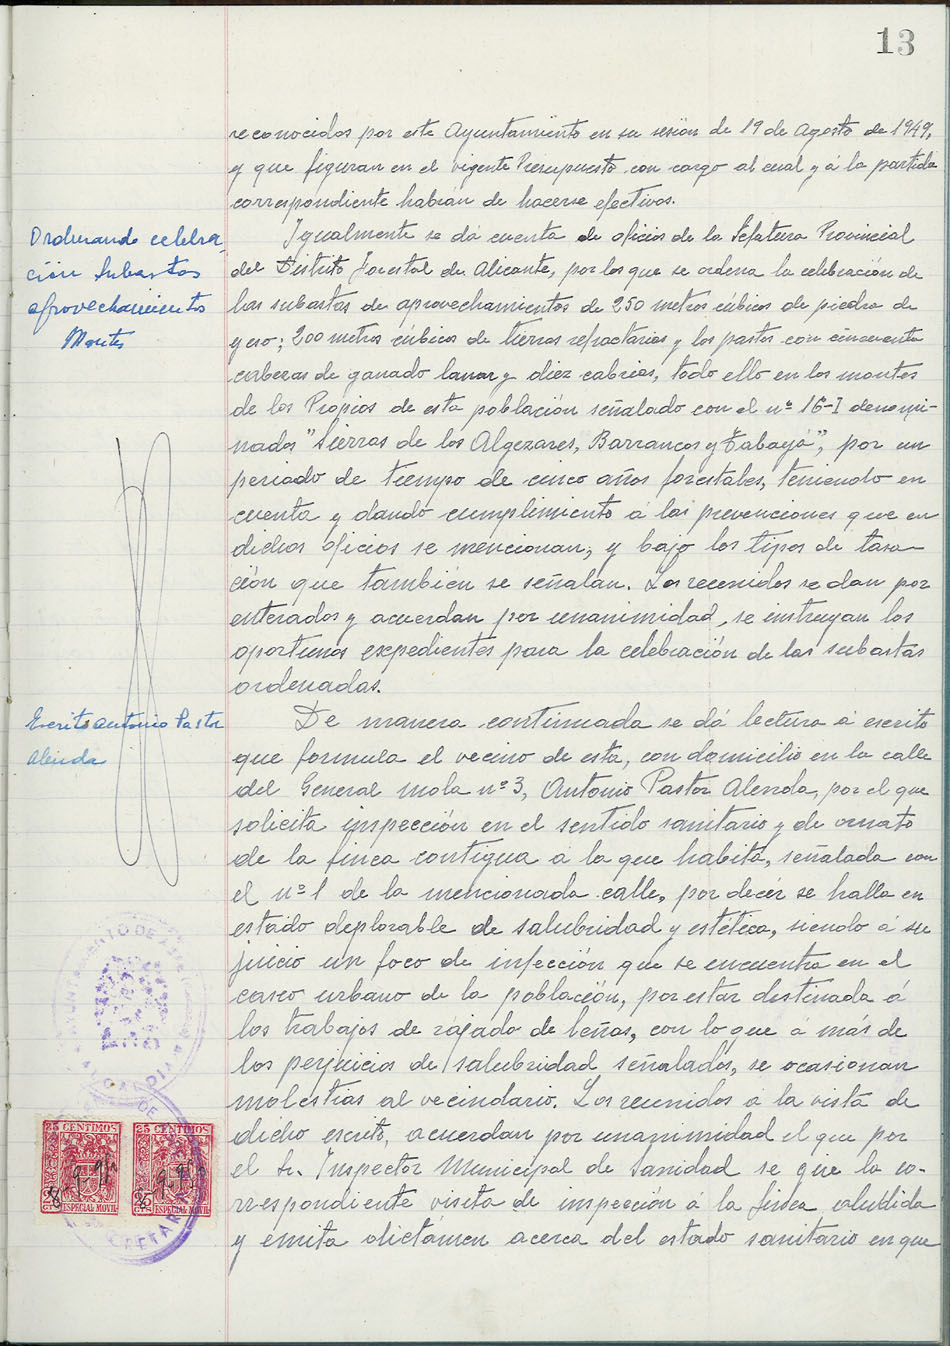 13
reconocidos por este Ayuntamiento en su sesión de 19 de Agosto de 1949,
y que figuran en el vigente Presupuesto con cargo al cual y á la partida
correspondiente habian de hacerse efectivos.
Ordenando celebra-
ción subastas
aprovechamientos
Montes
Igualmente se dá cuenta de oficios de la Jefatura Provincial
del Distrito Forestal de Alicante, por los que se ordena la celebración de
las subastas de aprovechamientos de 250 metros cúbicos de piedra de
yeso; 200 metros cúbicos de tierras refractarias y los pastos con cincuenta
cabezas de ganado lanar y diez cabrias, todo ello en los montes
de los Propios de esta población señalado con el nº 16-I denomi-
nados "Sierras de los Algezares, Barrancos y Tabayá", por un
periodo de tiempo de cinco años forestales, teniendo en
cuenta y dando cumplimiento a las prevenciones que en
dichos oficios se mencionan, y bajo los tipos de tasa-
ción que también se señalan. Los reunidos se dan por
enterados y acuerdan por unanimidad, se instruyan los
oportunos expedientes para la celebración de las subastas
ordenadas.
Escrito Antonio Pastor
Alenda
De manera continuada se dá lectura á escrito
que formula el vecino de esta, con domicilio en la calle
del General Mola nº 3, Antonio Pastor Alenda, por el que
solicita inspección en el sentido sanitario y de ornato
de la finca contigua a la que habita, señalada con
el nº 1 de la mencionada calle, por decir se halla en
estado deplorable de salubridad y estética, siendo á su
juicio un foco de infección que se encuentra en el
casco urbano de la población, por estar destinada á
los trabajos de rajado de leñas, con lo que á más de
los perjuicios de salubridad señalados, se ocasionan
molestias al vecindario. Los reunidos a la vista de
dicho escrito, acuerdan por unanimidad el que por
el Sr. Inspector Municipal de Sanidad se gire la co-
rrespondiente visita de inspección á la finca aludida
y emita dictámen acerca del estado sanitario en que
AYUNTAMIENTO DE
ALCALDIA
25 CENTIMOS
ESPECIAL MOVIL
25 CENTIMOS
ESPECIAL MOVIL
SECRETARIA